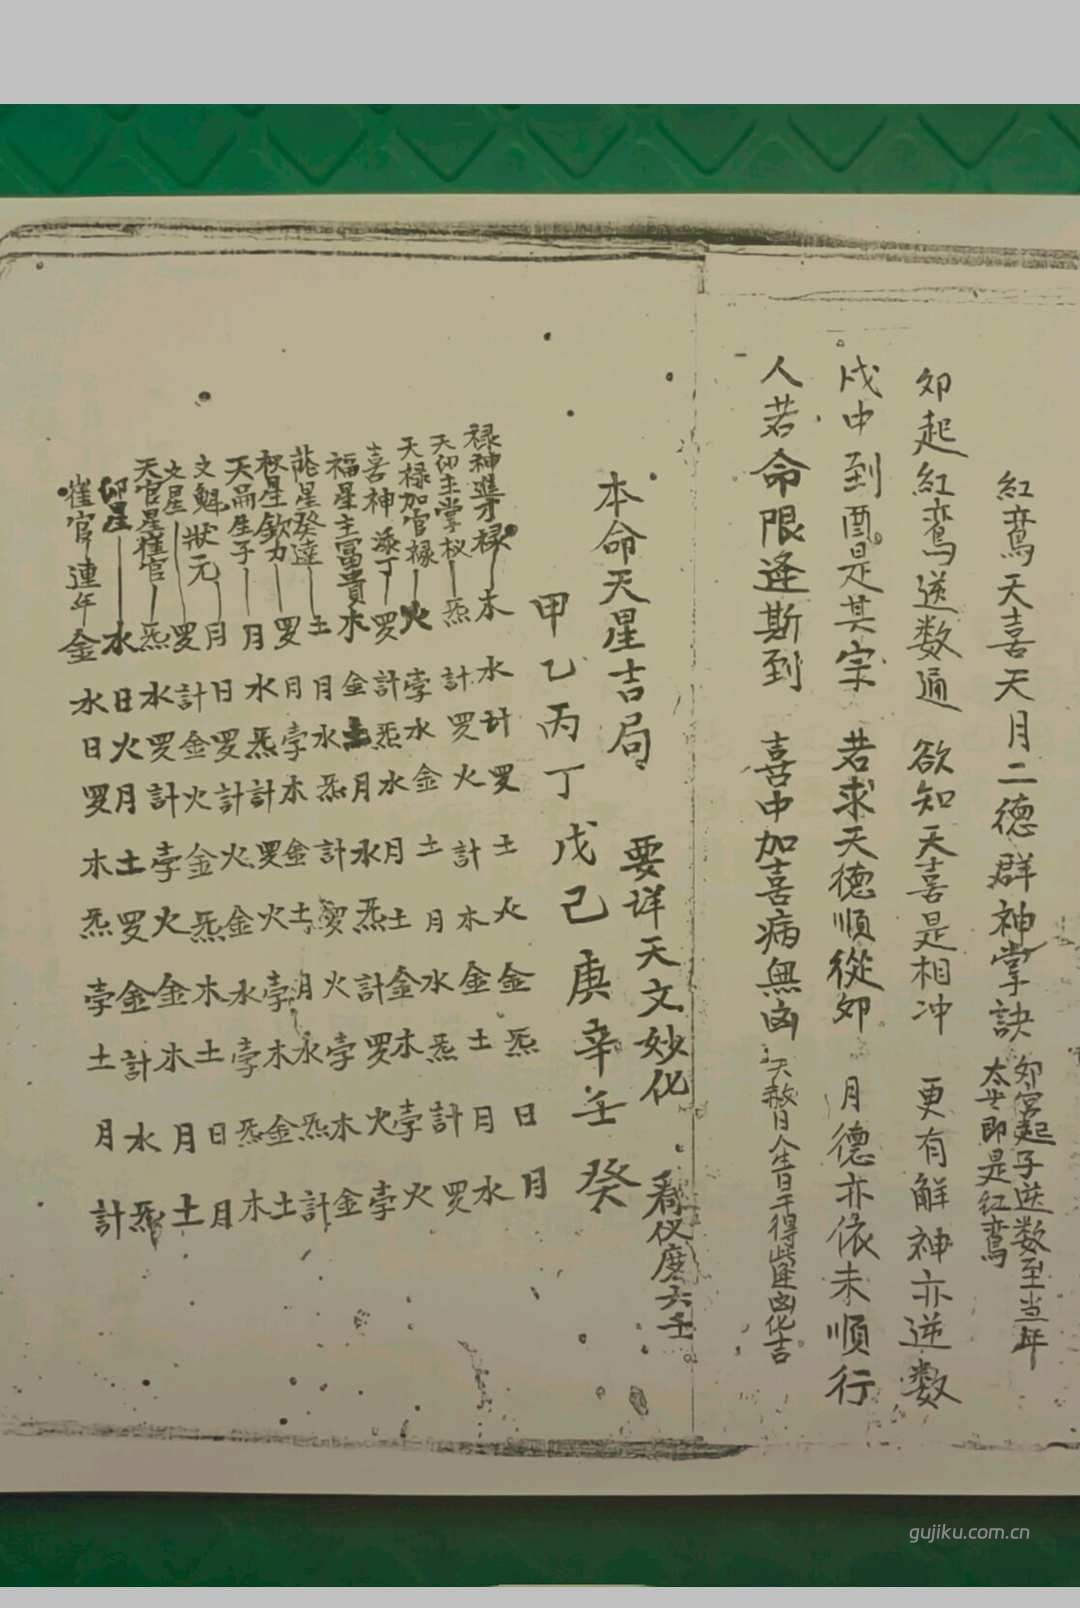 紅鸞天喜天月二德群神掌訣 卯宮起子逆数至当年
太岁即是紅鸞
卯起紅鸞逆数通 欲知天喜是相冲 更有解神亦逆数
戌中到酉是其宗 若求天德順從卯 月德亦依未順行
人若命限逢斯到 喜中加喜病無凶 天赦日人生日干得此逢凶化吉
本命天星吉局 要详天文妙化 看仪度六壬
甲乙丙丁戊己庚辛壬癸
禄神進才禄 木水计罗土火金炁日月
天卯主掌权 炁計罗火計木金土月水
天禄加官禄 火孛水金土月水炁計罗
喜神添丁 罗計炁水月土金木孛火
福星主富貴 木金土月水炁計罗火孛
土月水炁計罗火孛木金
罗月孛木金土月水炁計
月水炁計罗火孛木金土
文魁狀元 月日罗計火金水孛炁木
文星 罗計金火金炁木土日月
天官星催官 炁水罗計孛火金木月土
卯星 水日火月土罗金計水炁
催官連年 金水日罗木炁孛土月計
gujiku.com.cn